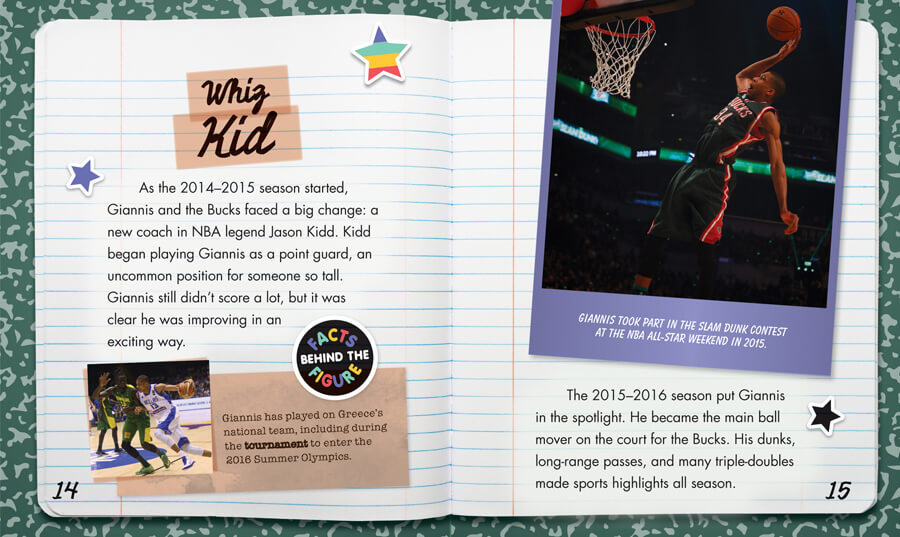 Whiz
Kid
As the 2014–2015 season started,
Giannis and the Bucks faced a big change: a
new coach in NBA legend Jason Kidd. Kidd
began playing Giannis as a point guard, an
uncommon position for someone so tall.
Giannis still didn't score a lot, but it was
clear he was improving in an
exciting way.
FACTS
BEHIND THE
FIGURE
Giannis has played on Greece's
national team, including during
the tournament to enter the
2016 Summer Olympics.
14
BUCKS
34
SLAM DUNK
GIANNIS TOOK PART IN THE SLAM DUNK CONTEST
AT THE NBA ALL-STAR WEEKEND IN 2015.
The 2015–2016 season put Giannis
in the spotlight. He became the main ball
mover on the court for the Bucks. His dunks,
long-range passes, and many triple-doubles
made sports highlights all season.
15